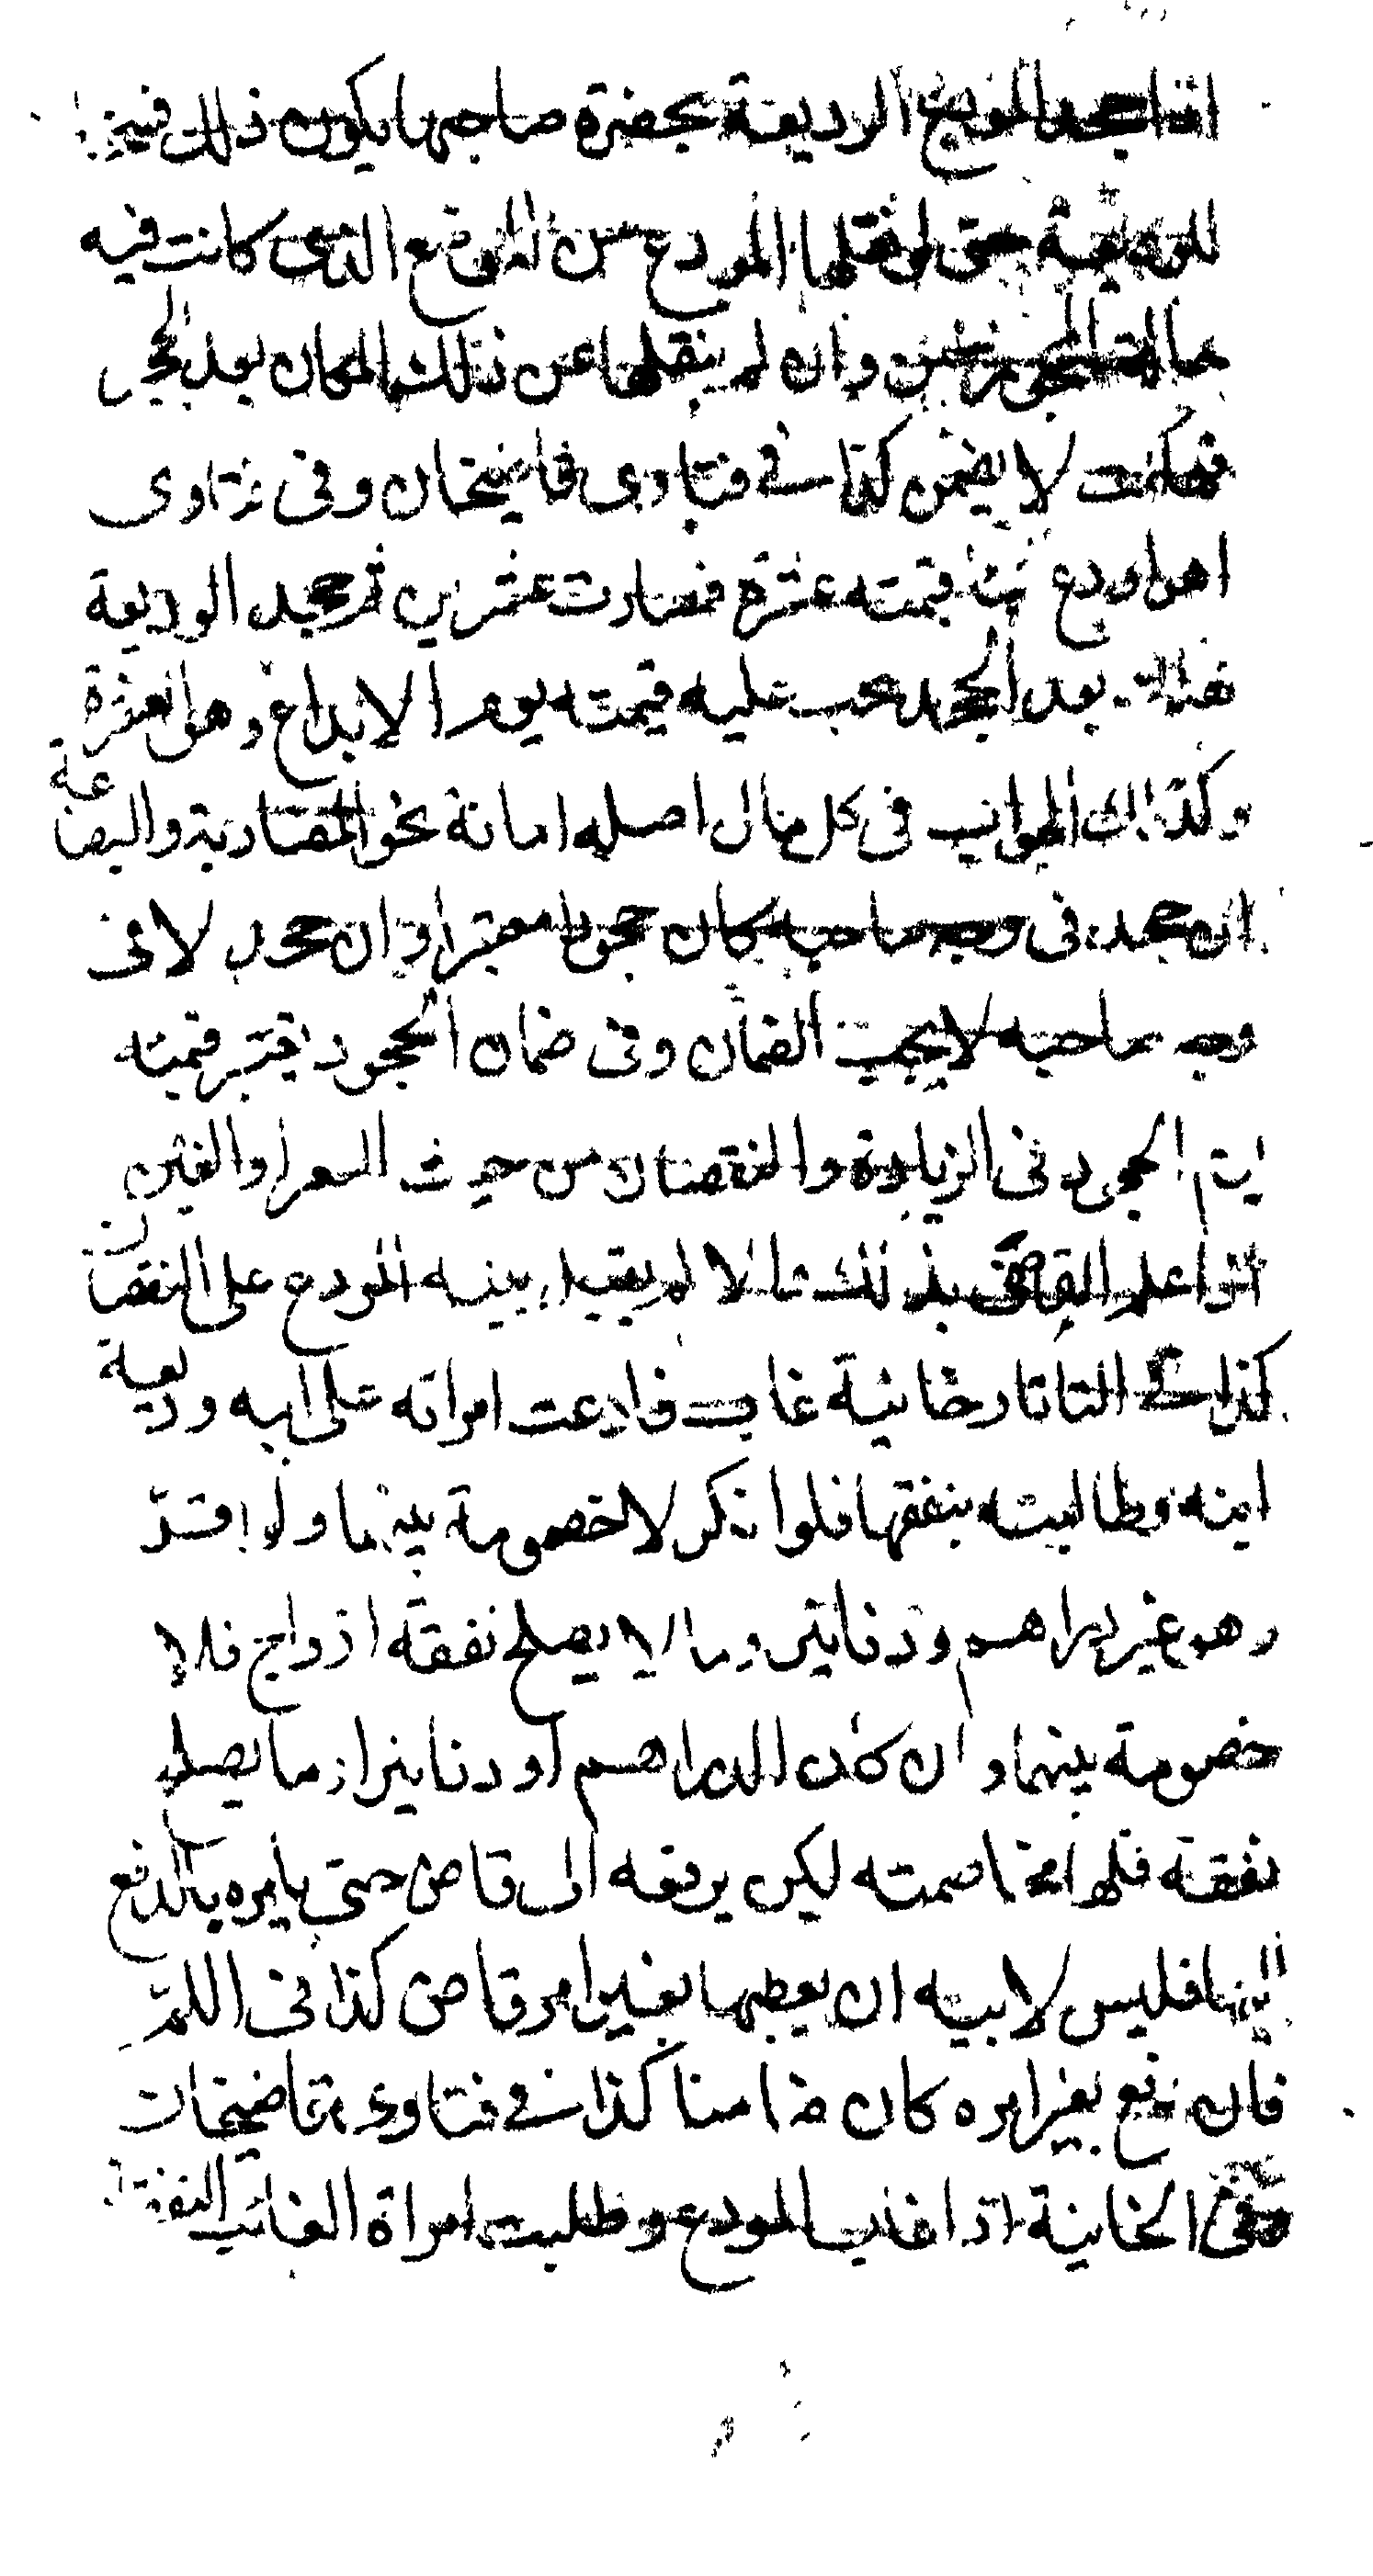 اذا جحد المودع الوديعة بحضرة صاحبها يكون ذلك فسخا
للوديعة حتى لو نقلها المودع من الموضع الذى كانت فيه
حالة الجحود ضمن وان لم ينقلها عن ذلك المكان بعد الجحود
فهلكت لا يضمن كذا فى فتاوى قاضيخان وفى فتاوى
اهو اودع قيمته عشرة فصارت عشرين ثم جحد الوديعة
بعد الجحد يجب عليه قيمته يوم الايداع وهو العشرة
وكذلك الجواب فى كل مال اصله امانة نحو المضاربة والبضاعة
ان جحد فى وجه صاحبه كان جحودا معتبرا وان جحد لا فى
وجه صاحبه لا يجب الضمان وفى ضمان الجحود يعتبر قيمته
يوم الجحود فى الزيادة والنقصان من حيث السعر او العين
بذلك لم يقبل بينه المودع على النقصان
كذا فى التاتارخانية غاب فادعت امراته على ابيه وديعة
ابنه وطالبته بنفقتها فلو انكر لا خصومة بينهما ولو اقر
وهو غير دراهم ودنانير وما لا يصلح نفقة ازواج فلا
خصومة بينهما وان كان الدراهم او دنانير او ما يصلح
نفقة فلها مخاصمته ليكن يرفعه الى قاض حتى يامره بالدفع
اليها فليس لابيه ان يعطيها بغير امر قاض كذا فى
فان دفع بغير امره كان ضامنا كذا فى فتاوى قاضيخان
وفى الخانية اذا غاب المودع وطلبت امراة الغائب النفقة